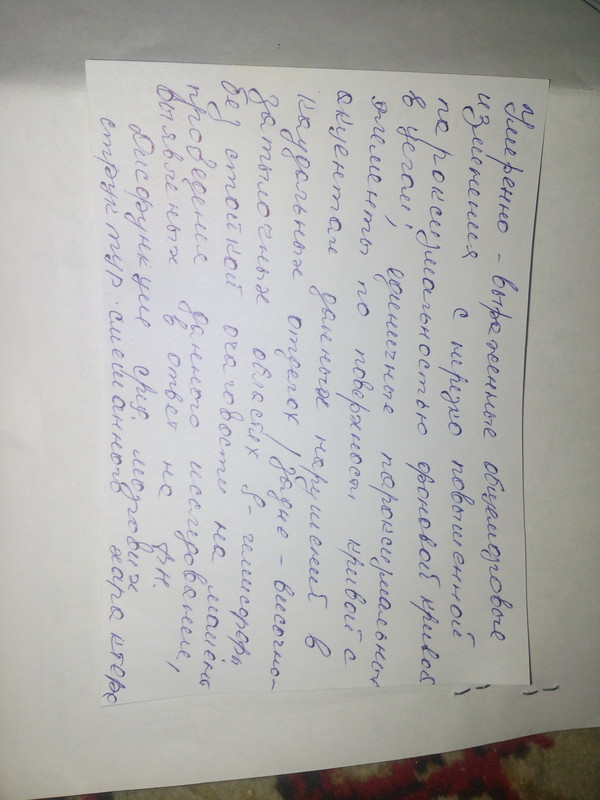 Умеренно - выраженные общемозговые
изменения с нерезко повышенной
пароксизмальностью фоновой кривой
в целом; единичные пароксизмальные
элементы по поверхности кривой с
акцентом данных нарушений в
каудальных отделах / задне - височно -
затылочных областях S - гемисферы
без стойкой очаговости на момент
проведения данного исследования,
выявленных в ответ на ФН.
Дисфункция сред. мозговых
структур смешанного характера